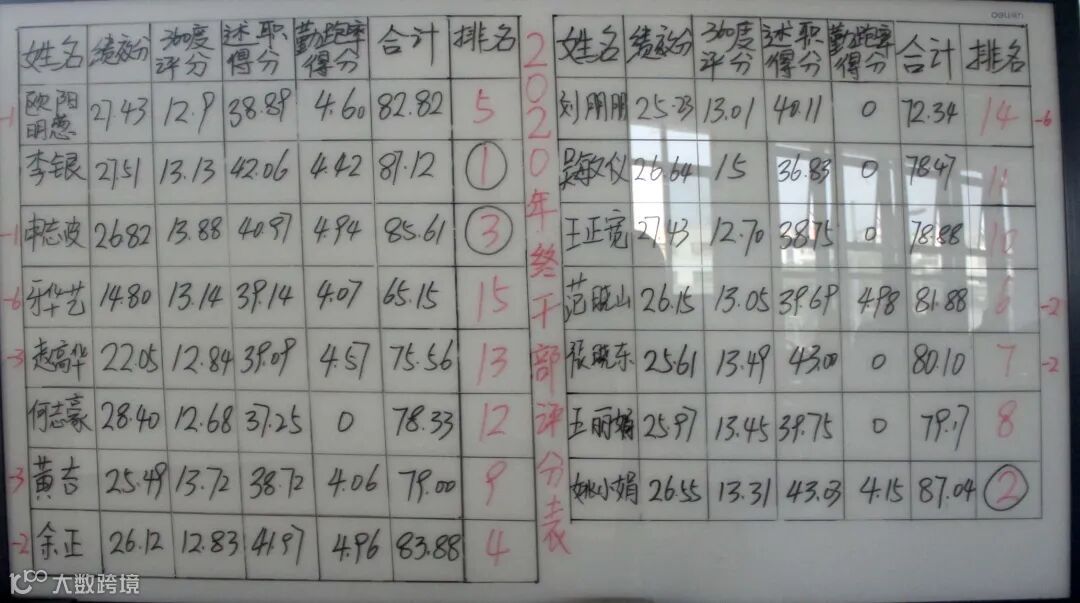 deli
姓名 绩效分 360度评分 述职得分 勤跑率得分 合计 排名
-1 欧阳明慧 27.43 12.9 38.89 4.60 82.82 5
李银 27.51 13.13 42.06 4.42 87.12 1
-1 志波 26.82 13.88 40.97 4.94 85.61 3
-6 华艺 14.80 13.14 39.14 4.07 65.15 15
-3 赵高华 22.05 12.84 39.09 4.57 75.56 13
何志豪 28.40 12.68 37.25 0 78.33 12
-3 黄吉 25.49 13.72 38.72 4.06 79.00 9
-2 余正 26.12 12.83 41.97 4.96 83.88 4
2020年终干部评分表
姓名 绩效分 360度评分 述职得分 勤跑率得分 合计 排名
刘朋朋 25.23 13.01 40.11 0 72.34 14 -6
吴敏仪 26.64 15 36.83 0 78.47 11
王正宽 27.43 12.70 38.75 0 78.88 10
范晓山 26.15 13.05 39.69 4.98 81.88 6 -2
张晓东 25.61 13.49 43.00 0 80.10 7 -2
王丽娟 25.97 13.45 39.75 0 79.17 8
姚小娟 26.55 13.31 43.03 4.15 87.04 2
大数跨境